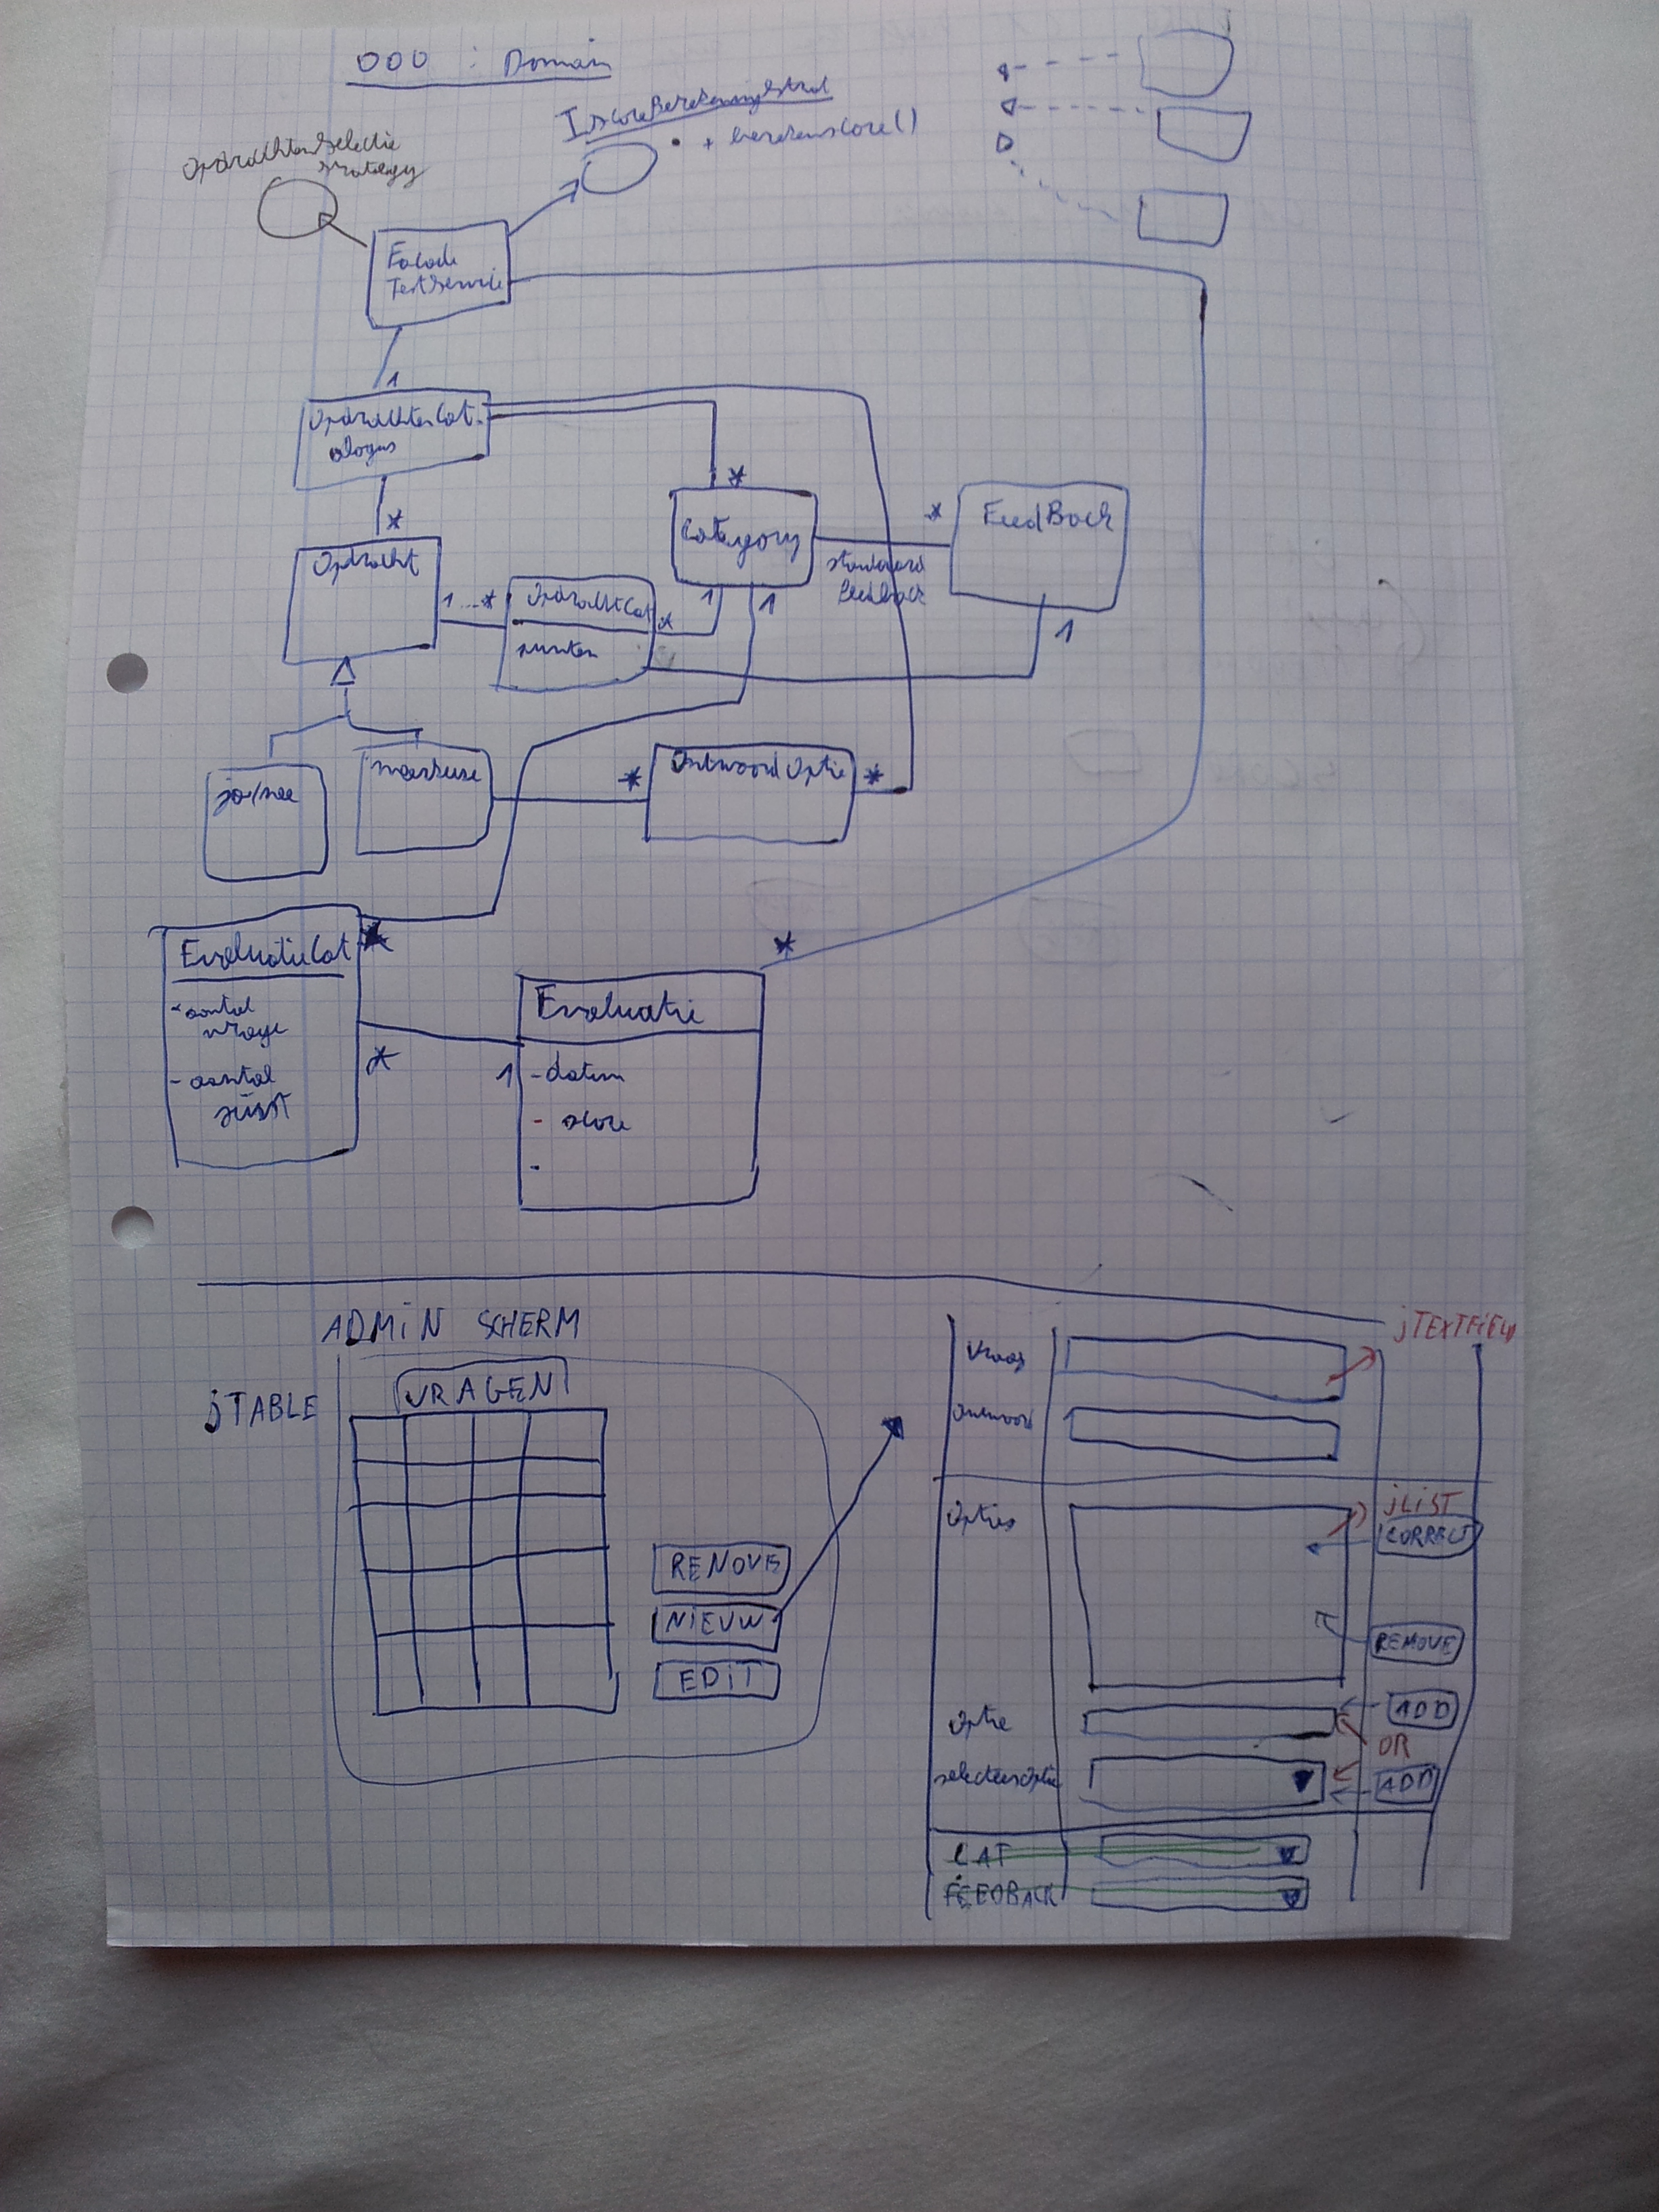 OOO : Domain
IScoreBerekeningStrat
+ berekenScore()
OpdrachtenSelectie
strategy
Facade
TestService
1
OpdrachtenCat-
alogus
*
*
Category
*
FeedBack
standaard
feedback
Opdracht
1...*
OpdrachtCat
*
1
1
1
punten
ja/nee
meerkeuze
*
AntwoordOptie
*
EvaluatieCat
*
- aantal
vrage
- aantal
juist
*
1
*
Evaluatie
- datum
- score
-
ADMiN SCHERM
jTABLE
VRAGEN
REMOVE
NiEUW
EDiT
jTEXTFiELD
Vraag
Antwoord
Opties
jLiST
CORRECT
REMOVE
Optie
ADD
OR
selecteerOptie
ADD
CAT
FEEDBACK